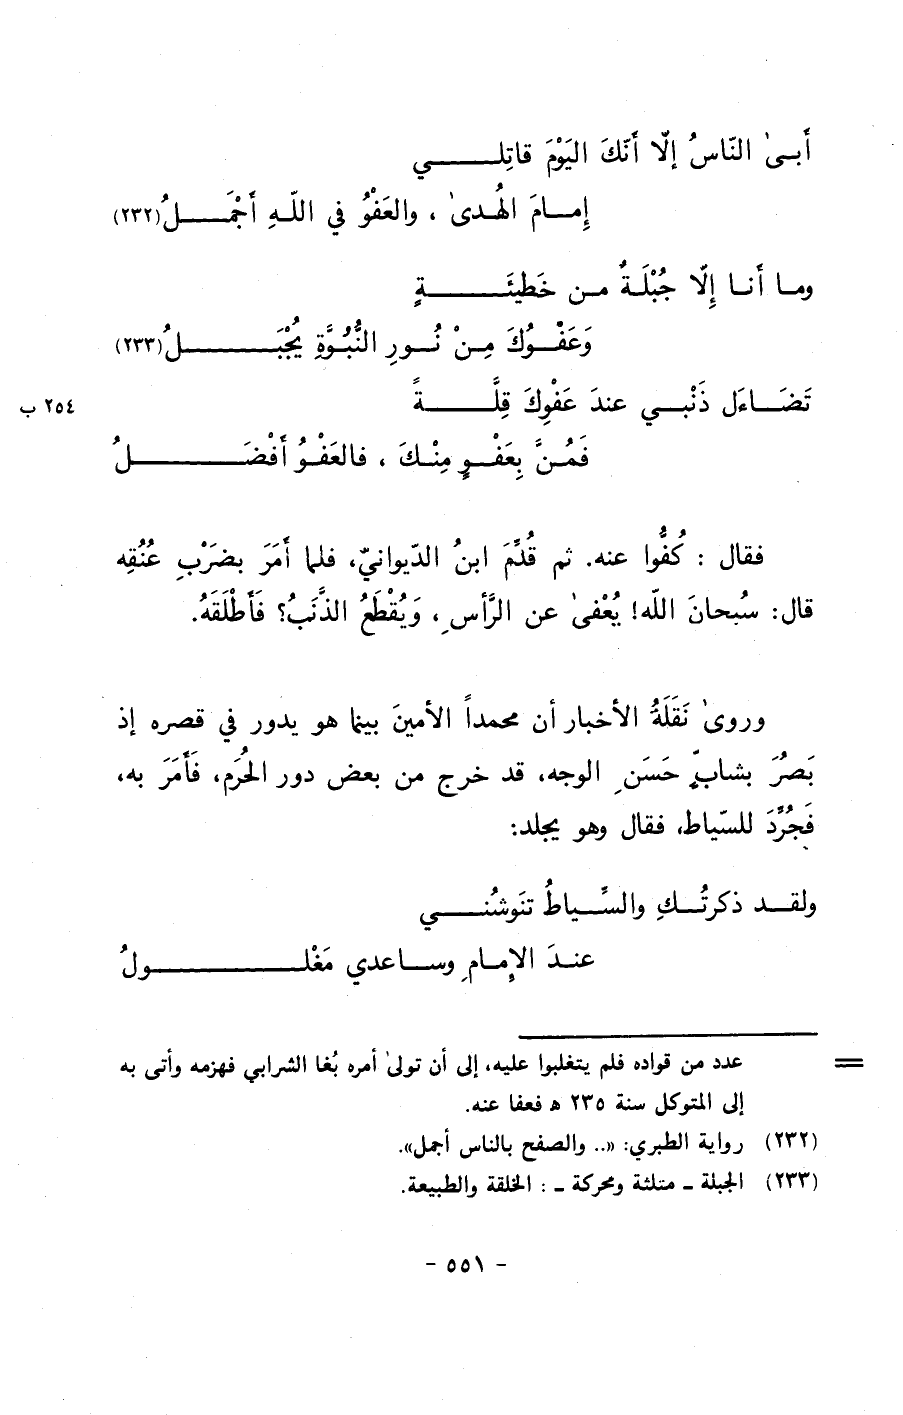 أَبىٰ النّاسُ إلّا أَنّكَ اليَوْمَ قاتِلي
إمامَ الهُدىٰ ، والعَفْوُ في اللّهِ أَجْمَلُ(٢٣٢)
وما أَنا إِلّا جُبْلَةٌ من خَطيئَةٍ
وَعَفْوُكَ مِنْ نُورِ النُّبُوَّةِ يُجْبَلُ(٢٣٣)
تَضَاءَل ذَنْبي عندَ عَفْوِكَ قِلَّةً
٢٥٤ ب
فَمُنَّ بِعَفْوٍ مِنْكَ ، فالعَفْوُ أَفْضَلُ
فقال : كُفُّوا عنه. ثم قُدِّمَ ابنُ الدّيوانيّ، فلما أَمَرَ بضرَبْ عُنُقِه
قال: سُبحانَ اللّه! يُعْفىٰ عن الرَّأسِ، وَيُقْطَعُ الذَّنَبُ؟ فَأَطْلَقَهُ.
وروىٰ نَقَلَةُ الأخبار أن محمداً الأمينَ بينما هو يدور في قصره إذ
بَصُرَ بشابٍّ حَسَنِ الوجه، قد خرج من بعض دور الحُرَم، فَأَمَرَ به،
فَجُرِّدَ للسّياط، فقال وهو يجلد:
ولقد ذكرتُكِ والسِّياطُ تنَوشُني
عندَ الإمامِ وساعدي مَغْلولُ
= عدد من قواده فلم يتغلبوا عليه، إلى أن تولىٰ أمره بُغا الشرابي فهزمه وأتى به
إلى المتوكل سنة ٢٣٥ ه فعفا عنه.
(٢٣٢) رواية الطبري: «.. والصفح بالناس أجمل».
(٢٣٣) الجبلة - مثلثة ومحركة - : الخلقة والطبيعة.
- ٥٥١ -